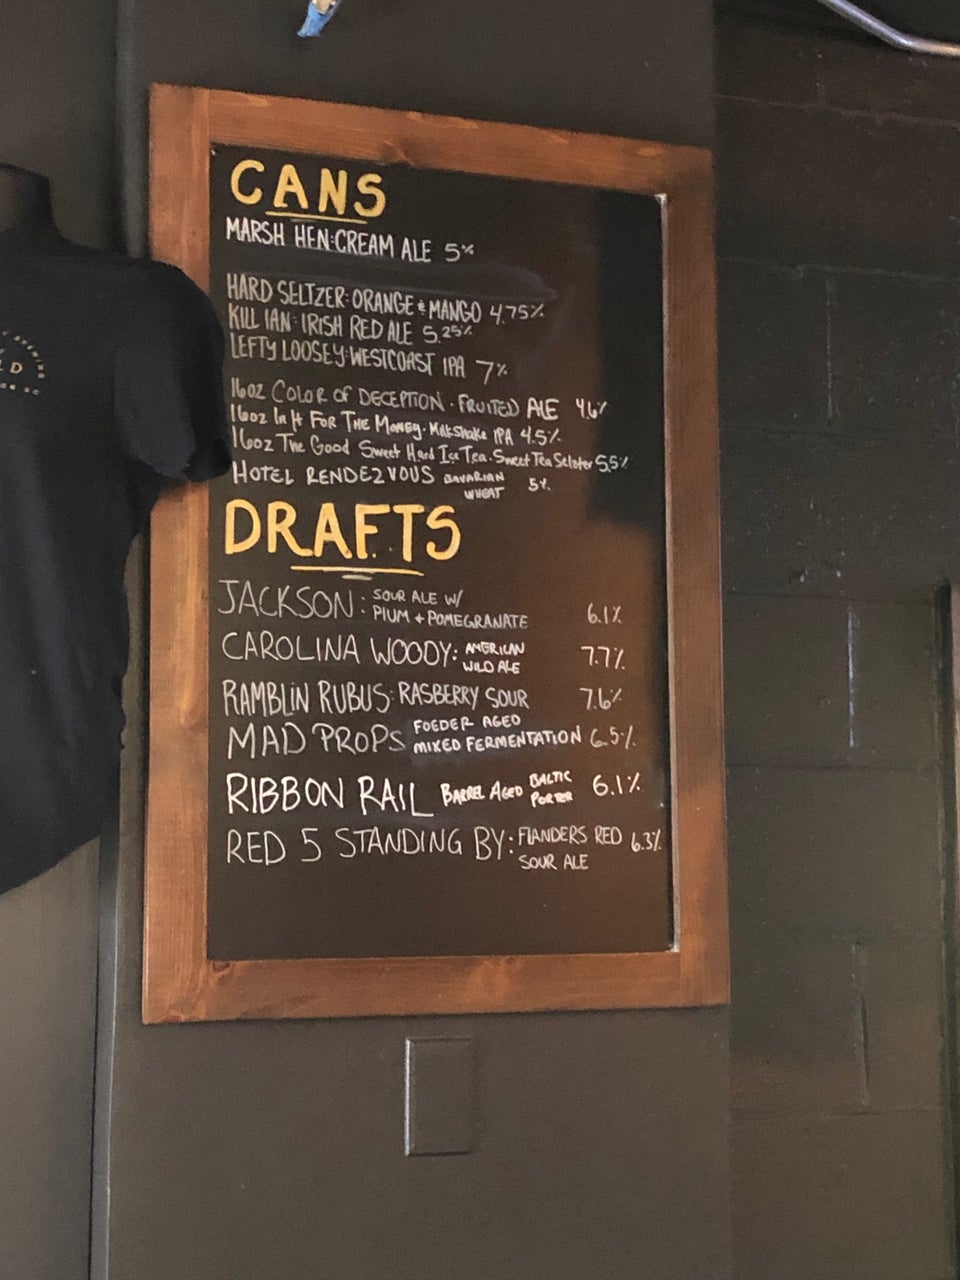 CANS
MARSH HEN:CREAM ALE 5%
HARD SELTZER:ORANGE & MANGO 4.75%
KILL IAN: IRISH RED ALE 5.25%
LEFTY LOOSEY:WESTCOAST IPA 7%
16oz COLOR OF DECEPTION - FRUITED ALE 4.6%
16oz In It FOR THE MONEY - MilkShake IPA 4.5%
16oz The Good Sweet Hard Ice Tea - Sweet Tea Seltzer 5.5%
HOTEL RENDEZVOUS BAVARIAN 5%
WHEAT
DRAFTS
JACKSON: SOUR ALE W/
PLUM + POMEGRANATE 6.1%
CAROLINA WOODY: AMERICAN 7.7%
WILD ALE
RAMBLIN RUBUS: RASBERRY SOUR 7.6%
MAD PROPS FOEDER AGED
MIXED FERMENTATION 6.5%
RIBBON RAIL BARREL AGED BALTIC 6.1%
PORTER
RED 5 STANDING BY: FLANDERS RED 6.3%
SOUR ALE